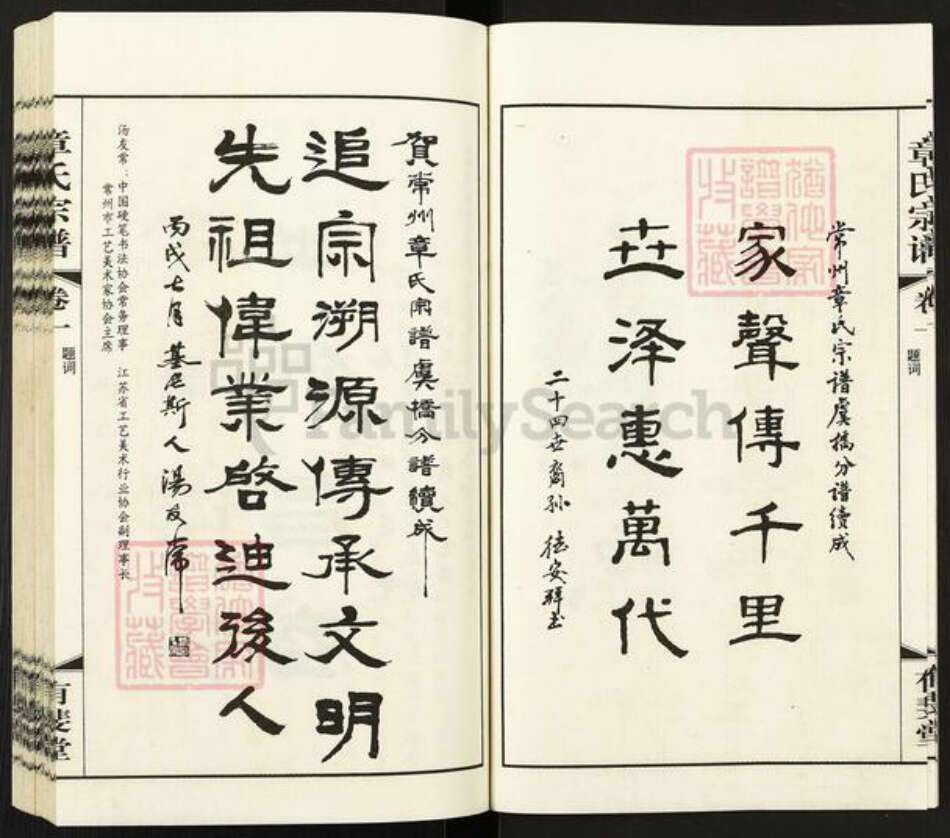 章氏宗谱
卷一
题词
有斐堂
常州章氏宗谱虞橋分谱續成
家聲傳千里
卋泽惠萬代
二十四世裔孙 德安拜书
賀常州章氏宗譜虞橋分譜續成
追宗溯源傳承文明
先祖偉業啓迪後人
丙戌七月 人湯友常
汤友常：中国硬笔书法协会常务理事 江苏省工艺美术行业协会副理事长
常州市工艺美术家协会主席
章氏宗谱
卷一
题词
有斐堂
FamilySearch